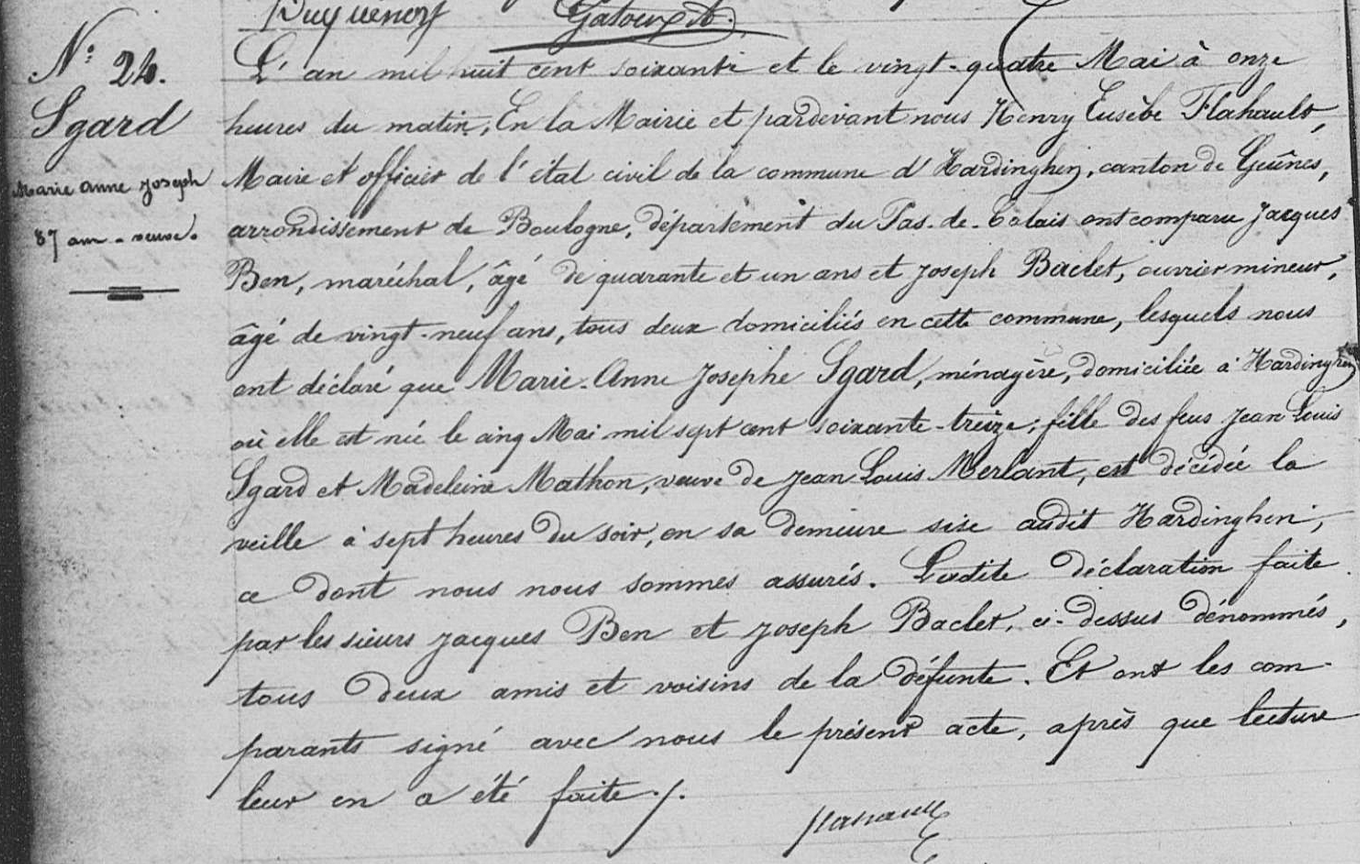 Duquenoy Gatoux A.
N.° 24.
Sgard
Marie Anne Joseph
87 ans - veuve.
L'an mil huit cent soixante et le vingt-quatre Mai à onze
heures du matin, En la Mairie et pardevant nous Henry Eusèbe Flahault,
Maire et officier de l'état civil de la commune d'Hardinghen, canton de Guînes,
arrondissement de Boulogne, département du Pas-de-Calais ont comparu Jacques
Ben, maréchal, âgé de quarante et un ans et Joseph Baclet, ouvrier mineur,
âgé de vingt-neuf ans, tous deux domiciliés en cette commune, lesquels nous
ont déclaré que Marie-Anne Josephe Sgard, ménagère, domiciliée à Hardinghen
où elle est née le cinq Mai mil sept cent soixante-treize, fille des feus Jean Louis
Sgard et Madeleine Mathon, veuve de Jean Louis Merlant, est décédée la
veille à sept heures du soir, en sa demeure sise audit Hardinghen,
ce dont nous nous sommes assurés. Ladite déclaration faite
par les sieurs Jacques Ben et Joseph Baclet, ci-dessus dénommés,
tous deux amis et voisins de la défunte. Et ont les com-
parants signé avec nous le présent acte, après que lecture
leur en a été faite ./.
Flahault